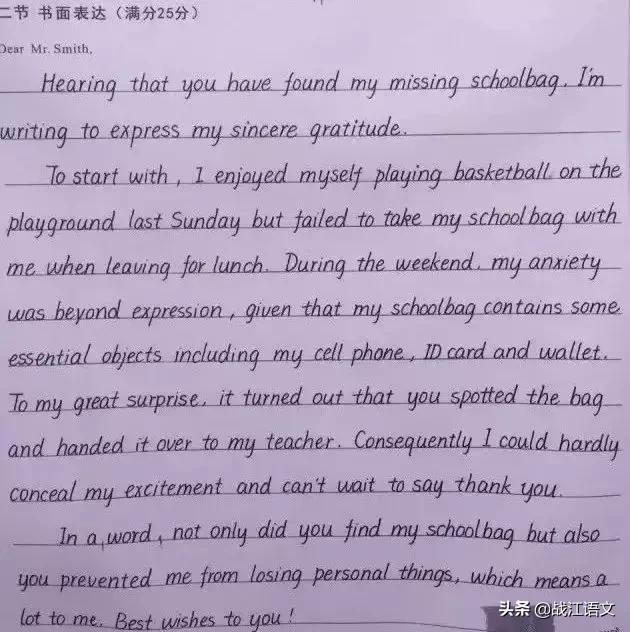 二节 书面表达（满分25分）
Dear Mr. Smith,
Hearing that you have found my missing schoolbag, I'm
writing to express my sincere gratitude.
To start with, I enjoyed myself playing basketball on the
playground last Sunday but failed to take my schoolbag with
me when leaving for lunch. During the weekend, my anxiety
was beyond expression, given that my schoolbag contains some
essential objects including my cell phone, ID card and wallet.
To my great surprise, it turned out that you spotted the bag
and handed it over to my teacher. Consequently I could hardly
conceal my excitement and can't wait to say thank you.
In a word, not only did you find my schoolbag but also
you prevented me from losing personal things, which means a
lot to me. Best wishes to you!
头条 @战江语文